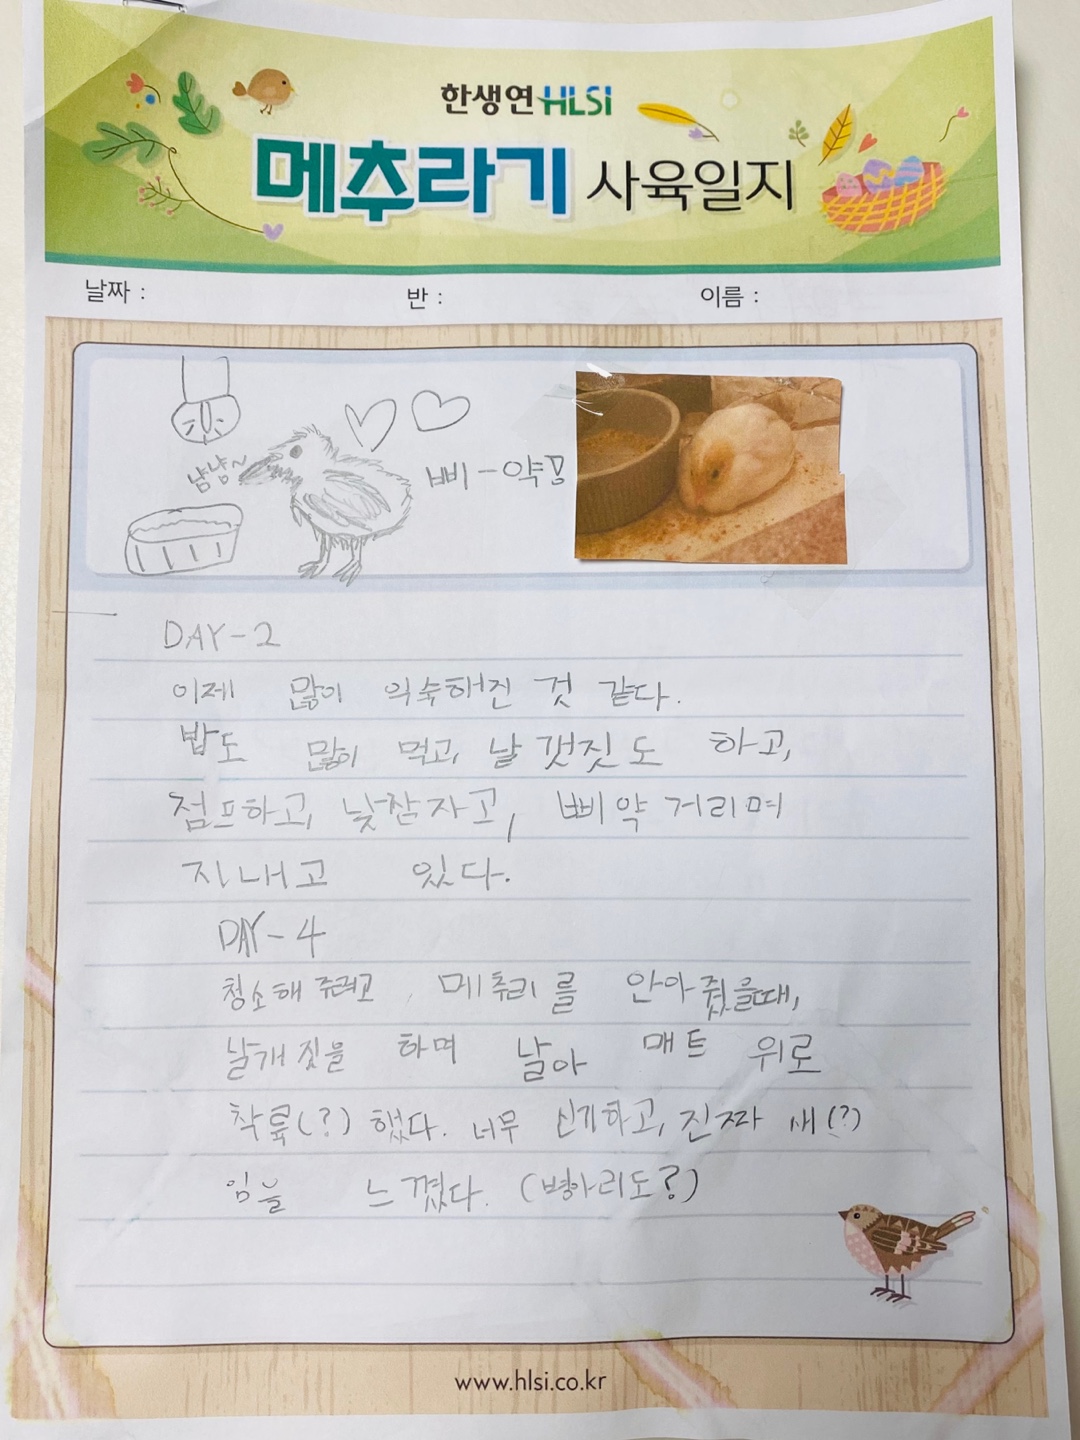 한생연 HLSI
메추라기 사육일지
날짜 :
반 :
이름 :
냠냠~
삐-약
DAY-2
이제 많이 익숙해진 것 같다.
밥도 많이 먹고, 날갯짓도 하고,
점프하고, 낮잠자고, 삐약거리며
지내고 있다.
DAY-4
청소해 주려고, 메추리를 안아줬을때,
날개짓을 하며 날아 매트 위로
착륙(?) 했다. 너무 신기하고, 진짜 새(?)
임을 느꼈다. (병아리도?)
www.hlsi.co.kr